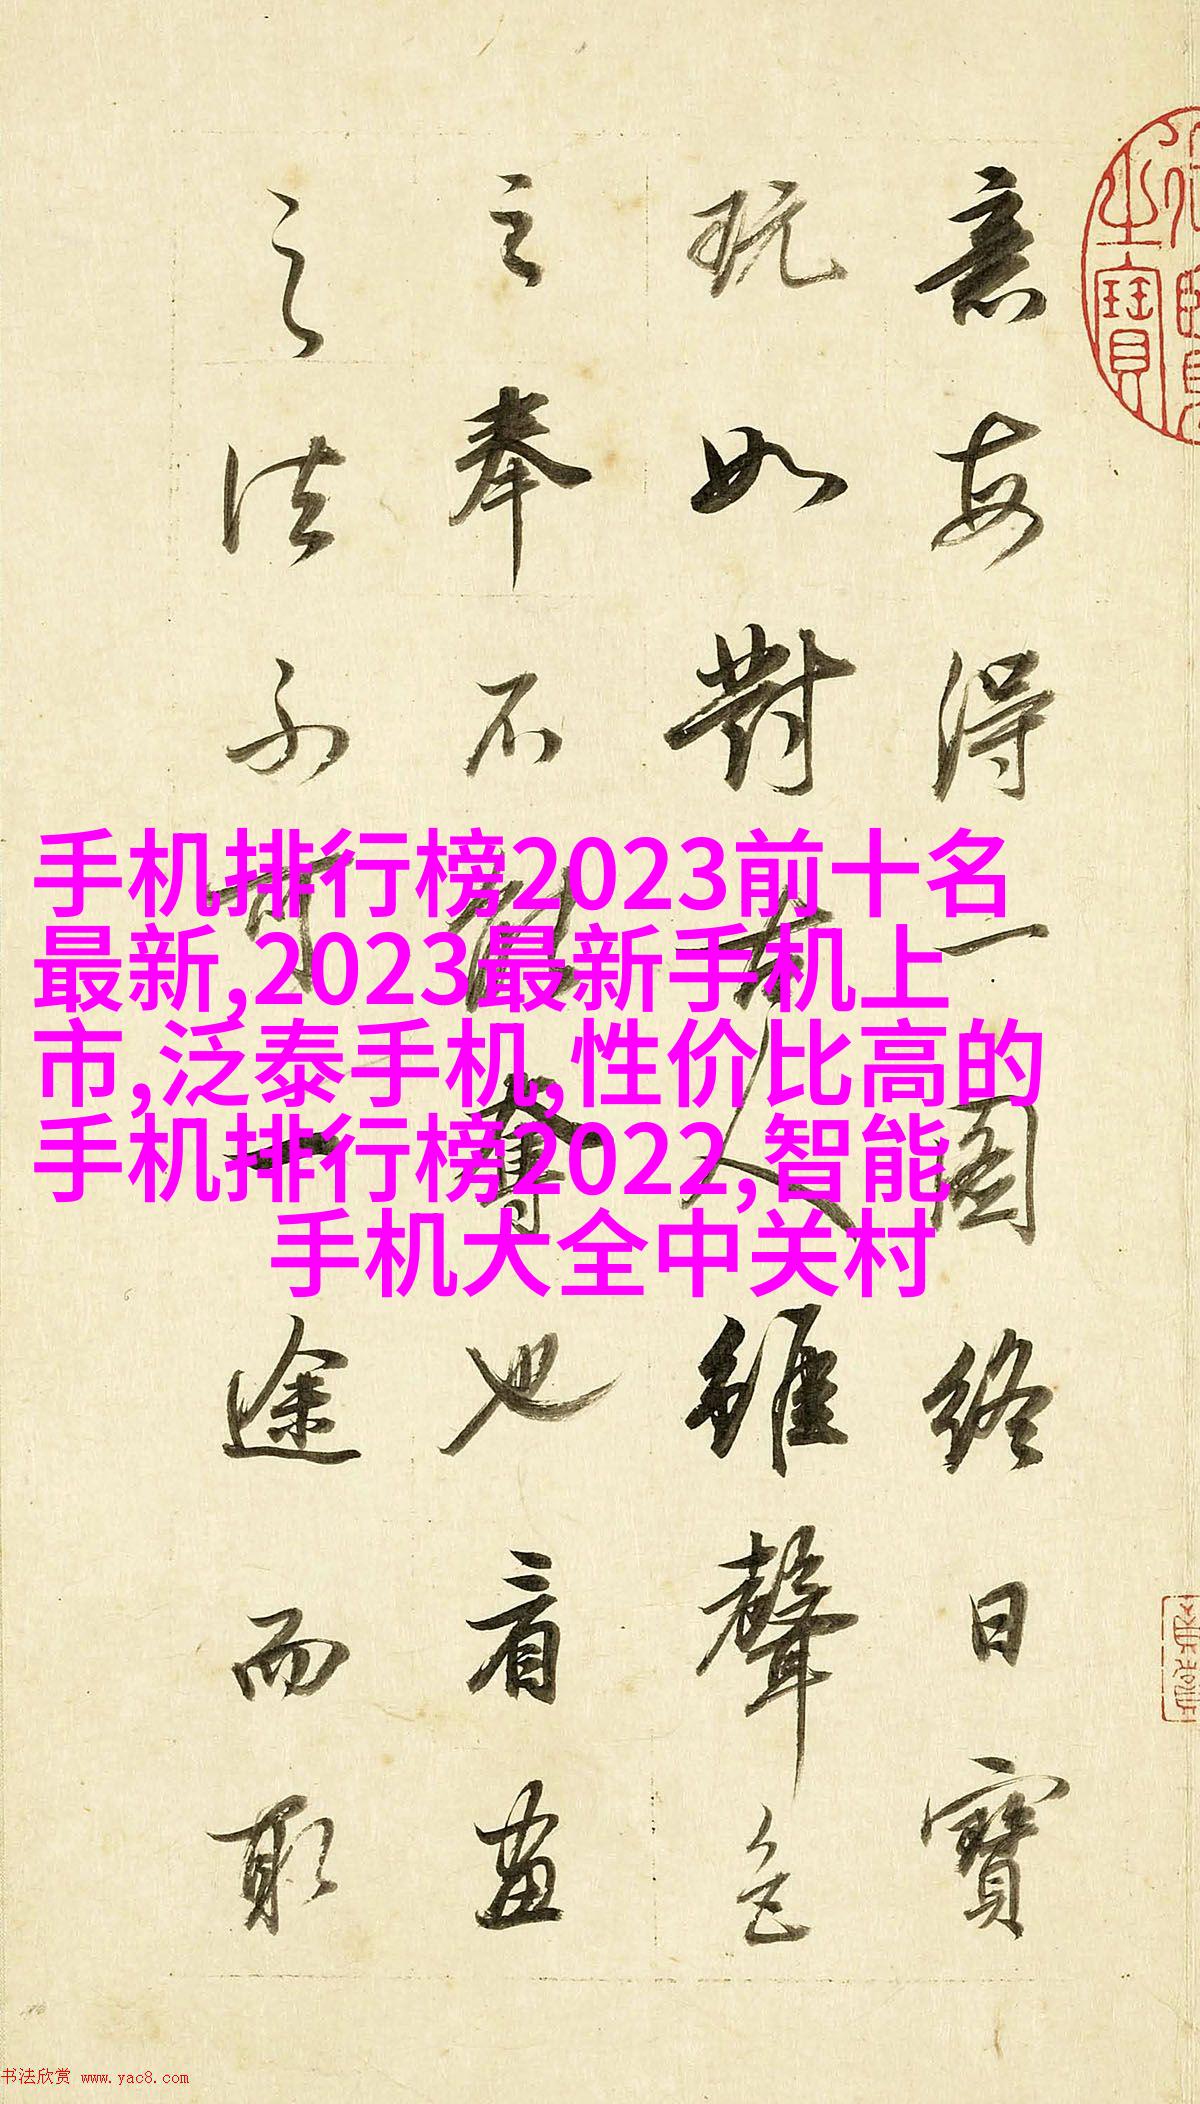 意每得一圖終日寶
玩如對古人雖聲色
之奉不能奪也看畫
之法不可一途而取
手机排行榜2023前十名
最新,2023最新手机上
市,泛泰手机,性价比高的
手机排行榜2022,智能
手机大全中关村
书法欣赏 www.yac8.com